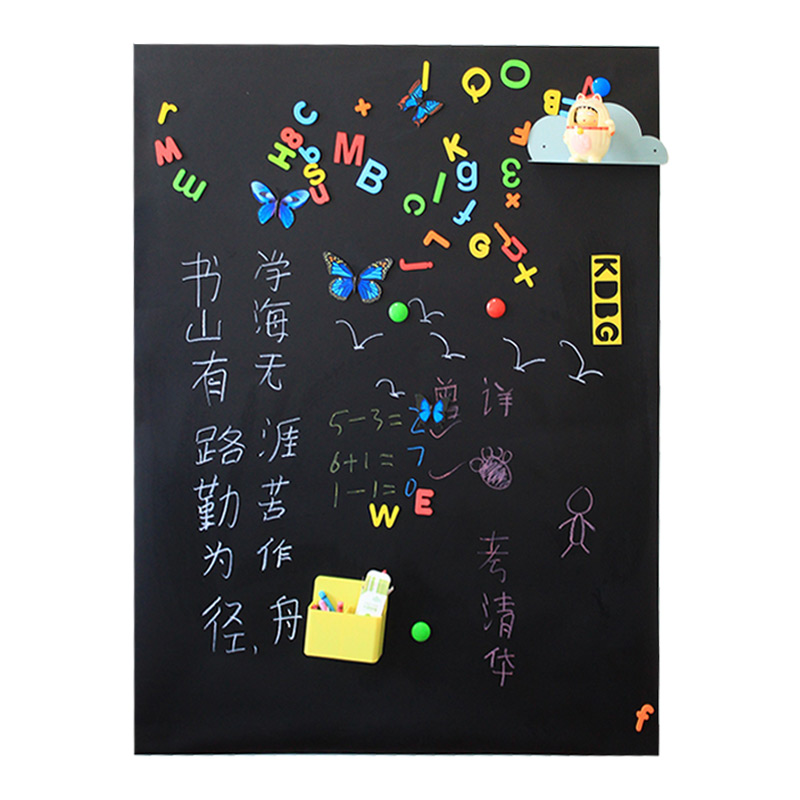 书山有路勤为径,
学海无涯苦作舟
5-3=2
6+1=7
1-1=0
曾 详
考清华
KDBG
W E
M
B
H
B
C
K
g
Q
O
I
f
r
W
m
x
s
u
c
l
3
G
x
L
J
f